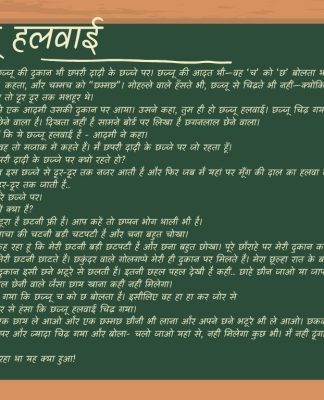 हलवाई
छज्जू की दुकान थी छपरी दादी के छज्जे पर। छज्जू की आदत थी—वह 'च' को 'छ' बोलता था
कहता, और चम्मच को "छम्मछ"। मोहल्ले वाले हँसते भी, छज्जू से चिढ़ते भी नहीं—क्योंकि
तो दूर दूर तक मशहूर थे।
एक आदमी उसकी दुकान पर आया। उसने कहा, तुम ही हो छज्जू हलवाई। छज्जू चिढ़ गया
छेने वाला है। दिखता नहीं है सामने बोर्ड पर लिखा है छगनलाल छेने वाला।
कि ये छज्जू हलवाई है - आदमी ने कहा।
वह तो मजाक में कहते हैं। मैं छपरी दादी के छज्जे पर जो रहता हूँ।
छपरी दादी के छज्जे पर क्यों रहते हो?
इस छज्जे से दूर-दूर तक नजर आती है और फिर जब मैं यहां पर मूँग की दाल का हलवा
दूर-दूर तक जाती है..
छज्जे पर।
क्या है?
है छटनी फ्री है। आप कहें तो छप्पन भोग थाली भी है।
चाचा की चटनी बड़ी चटपटी है और चना बहुत चोखा।
कह रहा हूं कि मेरी छटनी बड़ी छटपटी है और छना बहुत छोखा। पूरे छौराहे पर मेरी दुकान
मेरी छटनी छाटते हैं। छकुंदर वाले गोलगप्पे मेरी ही दुकान पर मिलते हैं। मेरा छूल्हा रात के
दुकान इसी छने भटूरे से छलती है। इतनी छहल पहल देखी है कहीं.. छाहे छीन जाओ या
छेने वाले जैसा छाम खाना कहीं नहीं मिलेगा।
गया कि छज्जू च को छ बोलता है। इसीलिए वह हा हा कर जोर से
से हंसा कि छज्जू हलवाई चिढ़ गया।
छाय ले आओ और एक छम्मछ छीनी भी लाना और अपने छने भटूरे भी ले आओ।
पर और ज्यादा चिढ़ गया और बोला- चलो जाओ यहां से, नहीं मिलेगा कुछ भी। मैं नहीं
रहा था यह क्या हुआ!